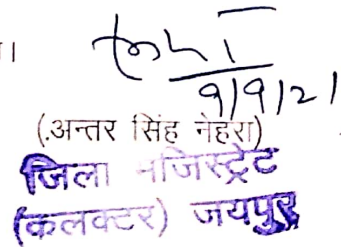 ।
9/9/21
(.अन्तर सिंह नेहरा)
जिला मजिस्ट्रेट
(कलक्टर) जयपुर